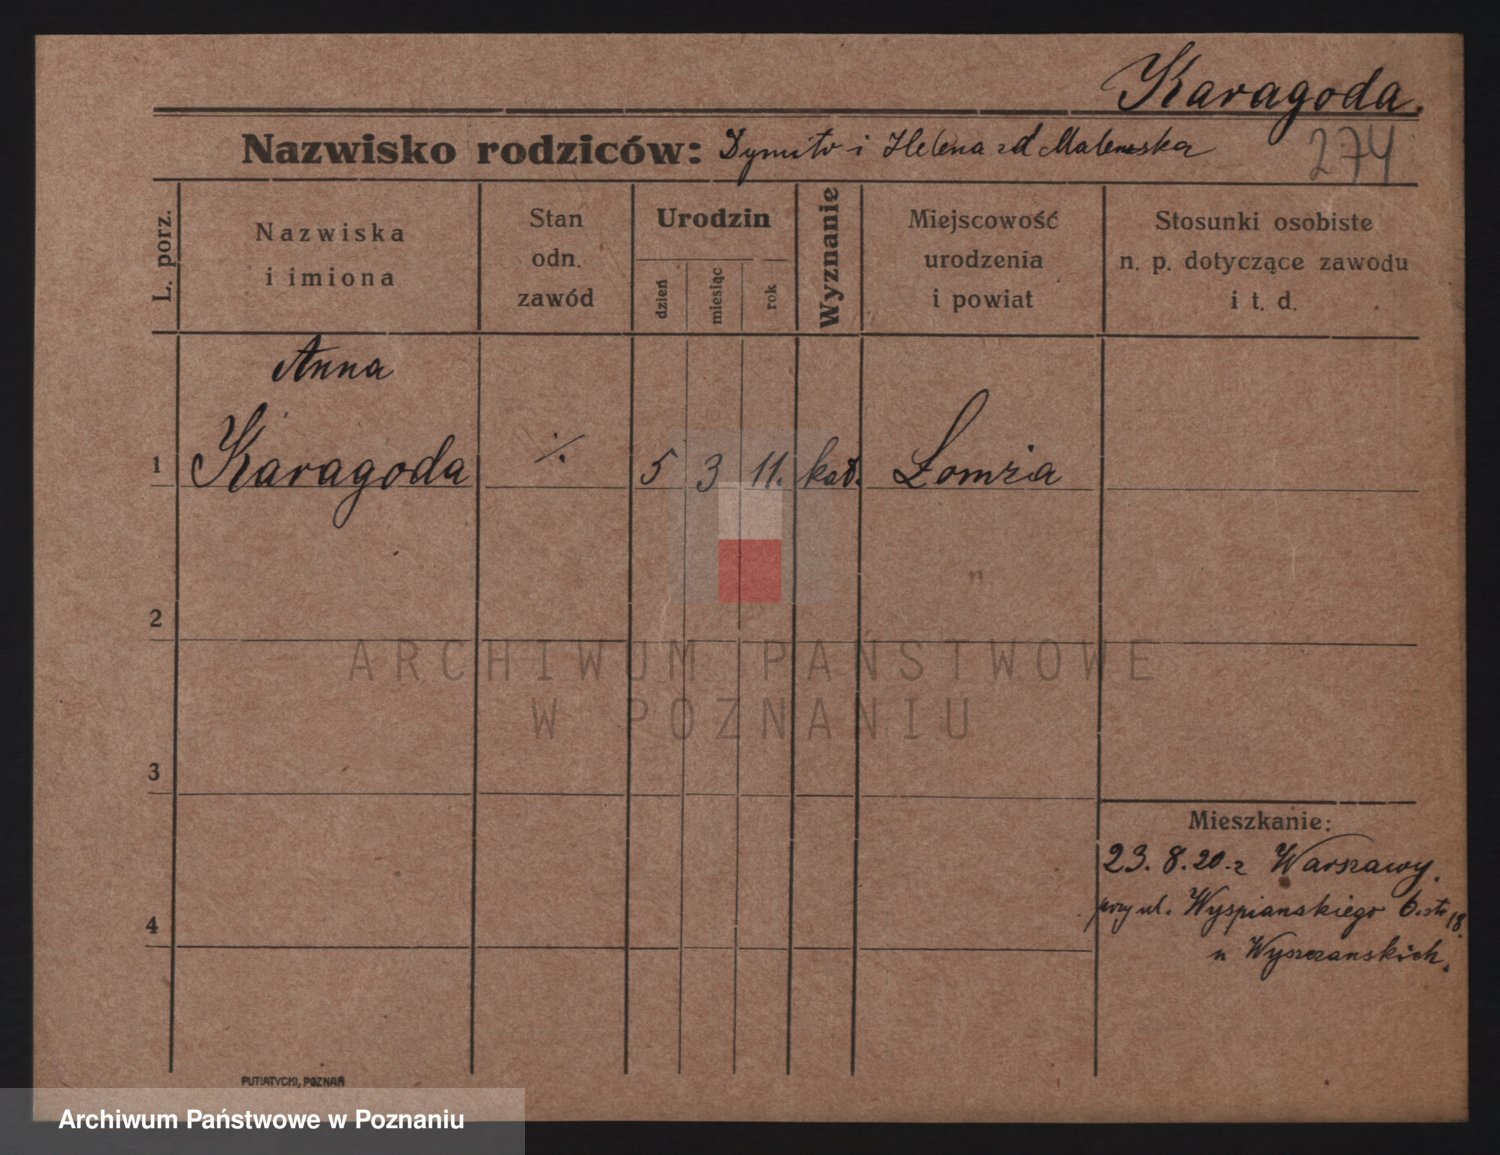 Karagoda.
Nazwisko rodziców: Dymitr i Helena zd Malewska
274
L. porz.
Nazwiska
i imiona
Stan
odn.
zawód
Urodzin
dzień
miesiąc
rok
Wyznanie
Miejscowość
urodzenia
i powiat
Stosunki osobiste
n. p. dotyczące zawodu
i t. d.
Anna
1 Karagoda ·/. 5 3 11. kat. Łomża
2
3
4
Mieszkanie:
23. 8. 20. z Warszawy.
przy ul. Wyspianskiego 6. 18.
u Wyszzanskich.
PUTIATYCKI, POZNAŃ
ARCHIWUM PAŃSTWOWE
W POZNANIU
Archiwum Państwowe w Poznaniu